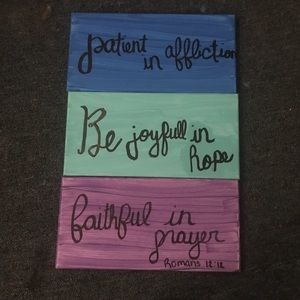 patient
in affliction
Be joyfull in
hope
faithful in
prayer
Romans 12:12